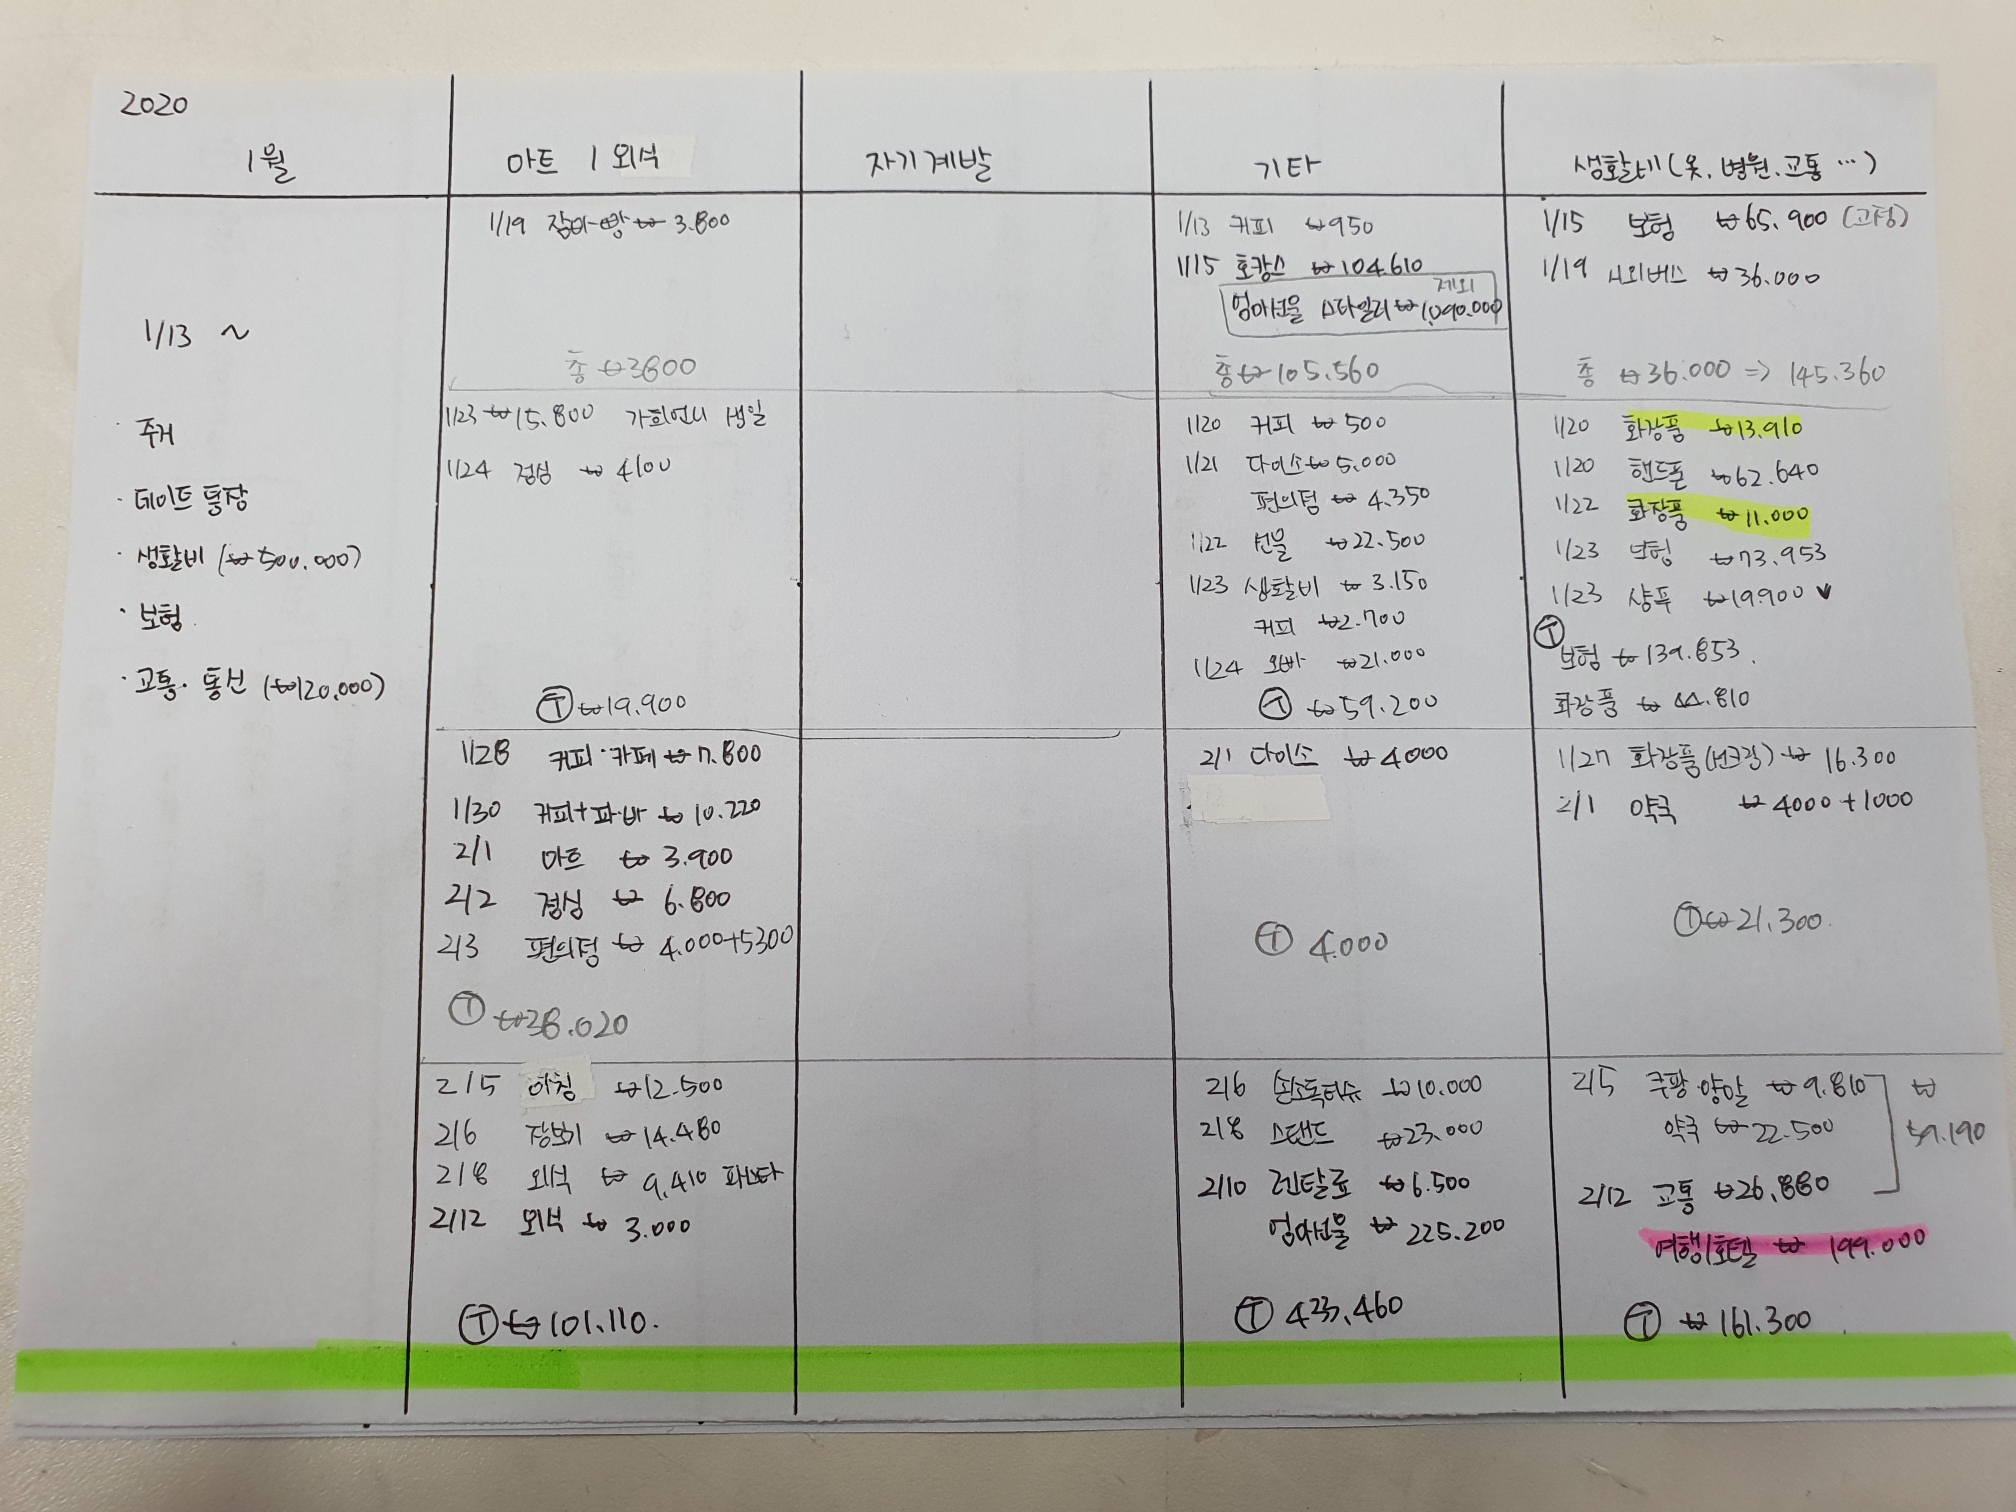 2020
1월
마트 / 외식
자기계발
기타
생활비 (옷, 병원, 교통 …)
1/13 ~
· 주거
· 데이트 통장
· 생활비 (₩500.000)
· 보험
· 교통· 통신 (₩120,000)
1/19 잠바-빵 ₩ 3.800
총 ₩3800
1/23 ₩15.800 가희언니 생일
1/24 점심 ₩ 4100
Ⓣ ₩19.900
1/28 커피·카페 ₩ 7.800
1/30 커피+파·바 ₩ 10.220
2/1 마트 ₩ 3.900
2/2 점심 ₩ 6.800
2/3 편의점 ₩ 4.000+5300
Ⓣ ₩38.020
2/5 아침 ₩12.500
2/6 장보기 ₩ 14.480
2/8 외식 ₩ 9,410 파스타
2/12 외식 ₩ 3.000
Ⓣ ₩101.110.
1/13 커피 ₩950
1/15 호캉스 ₩104.610
제외
엄마선물 스타일러 ₩1,090.000
총 ₩105.560
1/20 커피 ₩ 500
1/21 다이소 ₩5.000
편의점 ₩ 4.350
1/22 선물 ₩22.500
1/23 생활비 ₩ 3.150
커피 ₩2.700
1/24 오빠 ₩21.000
Ⓣ ₩59.200
2/1 다이소 ₩4000
Ⓣ 4.000
2/6 손소독티슈 ₩10.000
2/8 스탠드 ₩23.000
2/10 렌탈료 ₩6.500
엄마선물 ₩ 225.200
Ⓣ 433,460
1/15 보험 ₩65,900 (고정)
1/19 시외버스 ₩36.000
총 ₩36.000 => 145.360
1/20 화장품 ₩13.910
1/20 핸드폰 ₩62.640
1/22 화장품 ₩11.000
1/23 보험 ₩73.953
1/23 샴푸 ₩19.900 ✓
Ⓣ
보험 ₩139.853.
화장품 ₩ 44.810
1/27 화장품(선크림) ₩ 16.300
2/1 약국 ₩ 4000 +1000
Ⓣ ₩21,300.
2/5 쿠팡 양말 ₩9.810
약국 ₩22.500
2/12 교통 ₩26,880
₩
59.190
여행/호텔 ₩ 199.000
Ⓣ ₩ 161.300